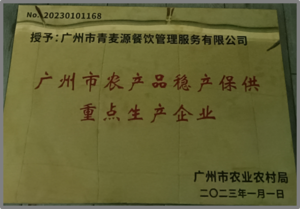 No.20230101168
授予:广州市青麦源餐饮管理服务有限公司
广州市农产品稳产保供
重点生产企业
广州市农业农村局
二〇二三年一月一日